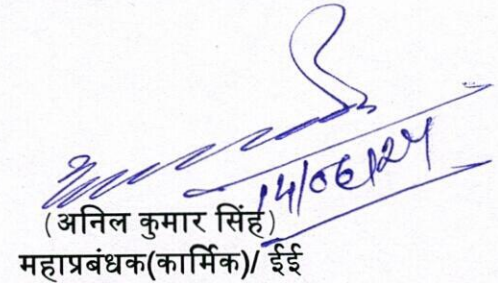 14/06/24
(अनिल कुमार सिंह)
महाप्रबंधक(कार्मिक)/ ईई